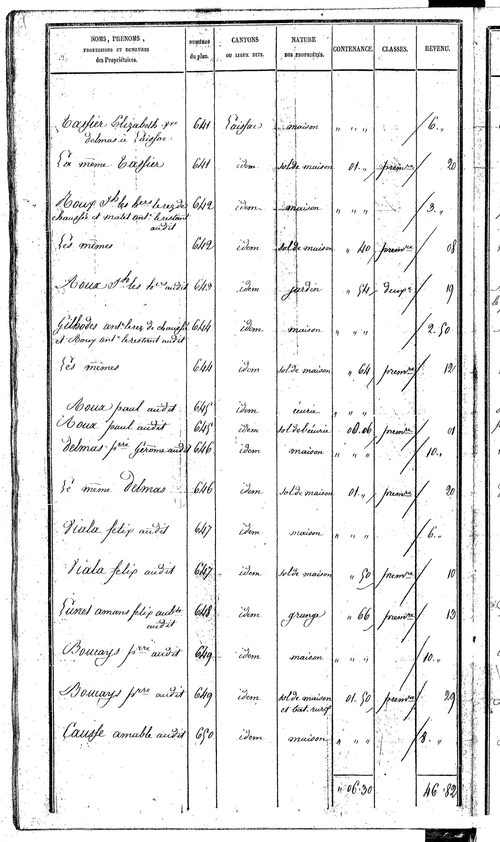 NOMS, PRENOMS, PROFESSIONS ET DEMEURES des Propriétaires. NUMÉROS du plan. CANTONS OU LIEUX DITS. NATURE DES PROPRIÉTÉS. CONTENANCE. CLASSES. REVENU.
Tassier Elizabeth 641 Laissac maison " " " 6. "
delmas à Laissac
La même Tassier 641 idem sol de maison 01. " premre 20
Roux Jh les hers le rez de 642 idem maison " " " 3. "
chaussée et malet ant. le restant
audit
Les mêmes 642 idem sol de maison " 40 premre 08
Roux Jh les hers audit 643 idem jardin " 54 deuxe 19
Githodes ant. le rez de chaussée 644 idem maison " " " 2.50
et Roux ant. le restant audit
Les mêmes 644 idem sol de maison " 64 premre 12
Roux paul audit 645 idem écurie " " "
Roux paul audit 645 idem sol de l'écurie 00.06 premre 01
Delmas prre Gérome audit 646 idem maison " " " 10. "
Le même Delmas 646 idem sol de maison 01. " premre 20
Viala felix audit 647 idem maison " " " 6. "
Viala felix audit 647 idem sol de maison " 50 premre 10
Lunet amans felix audit 648 idem grange " 66 premre 13
audit
Boucays prre audit 649 idem maison " " " 10. "
Boucays prre audit 649 idem sol de maison 01.50 premre 29
et bat. rural
Causse amable audit 650 idem maison " " " 8. "
" 06.30 46.82